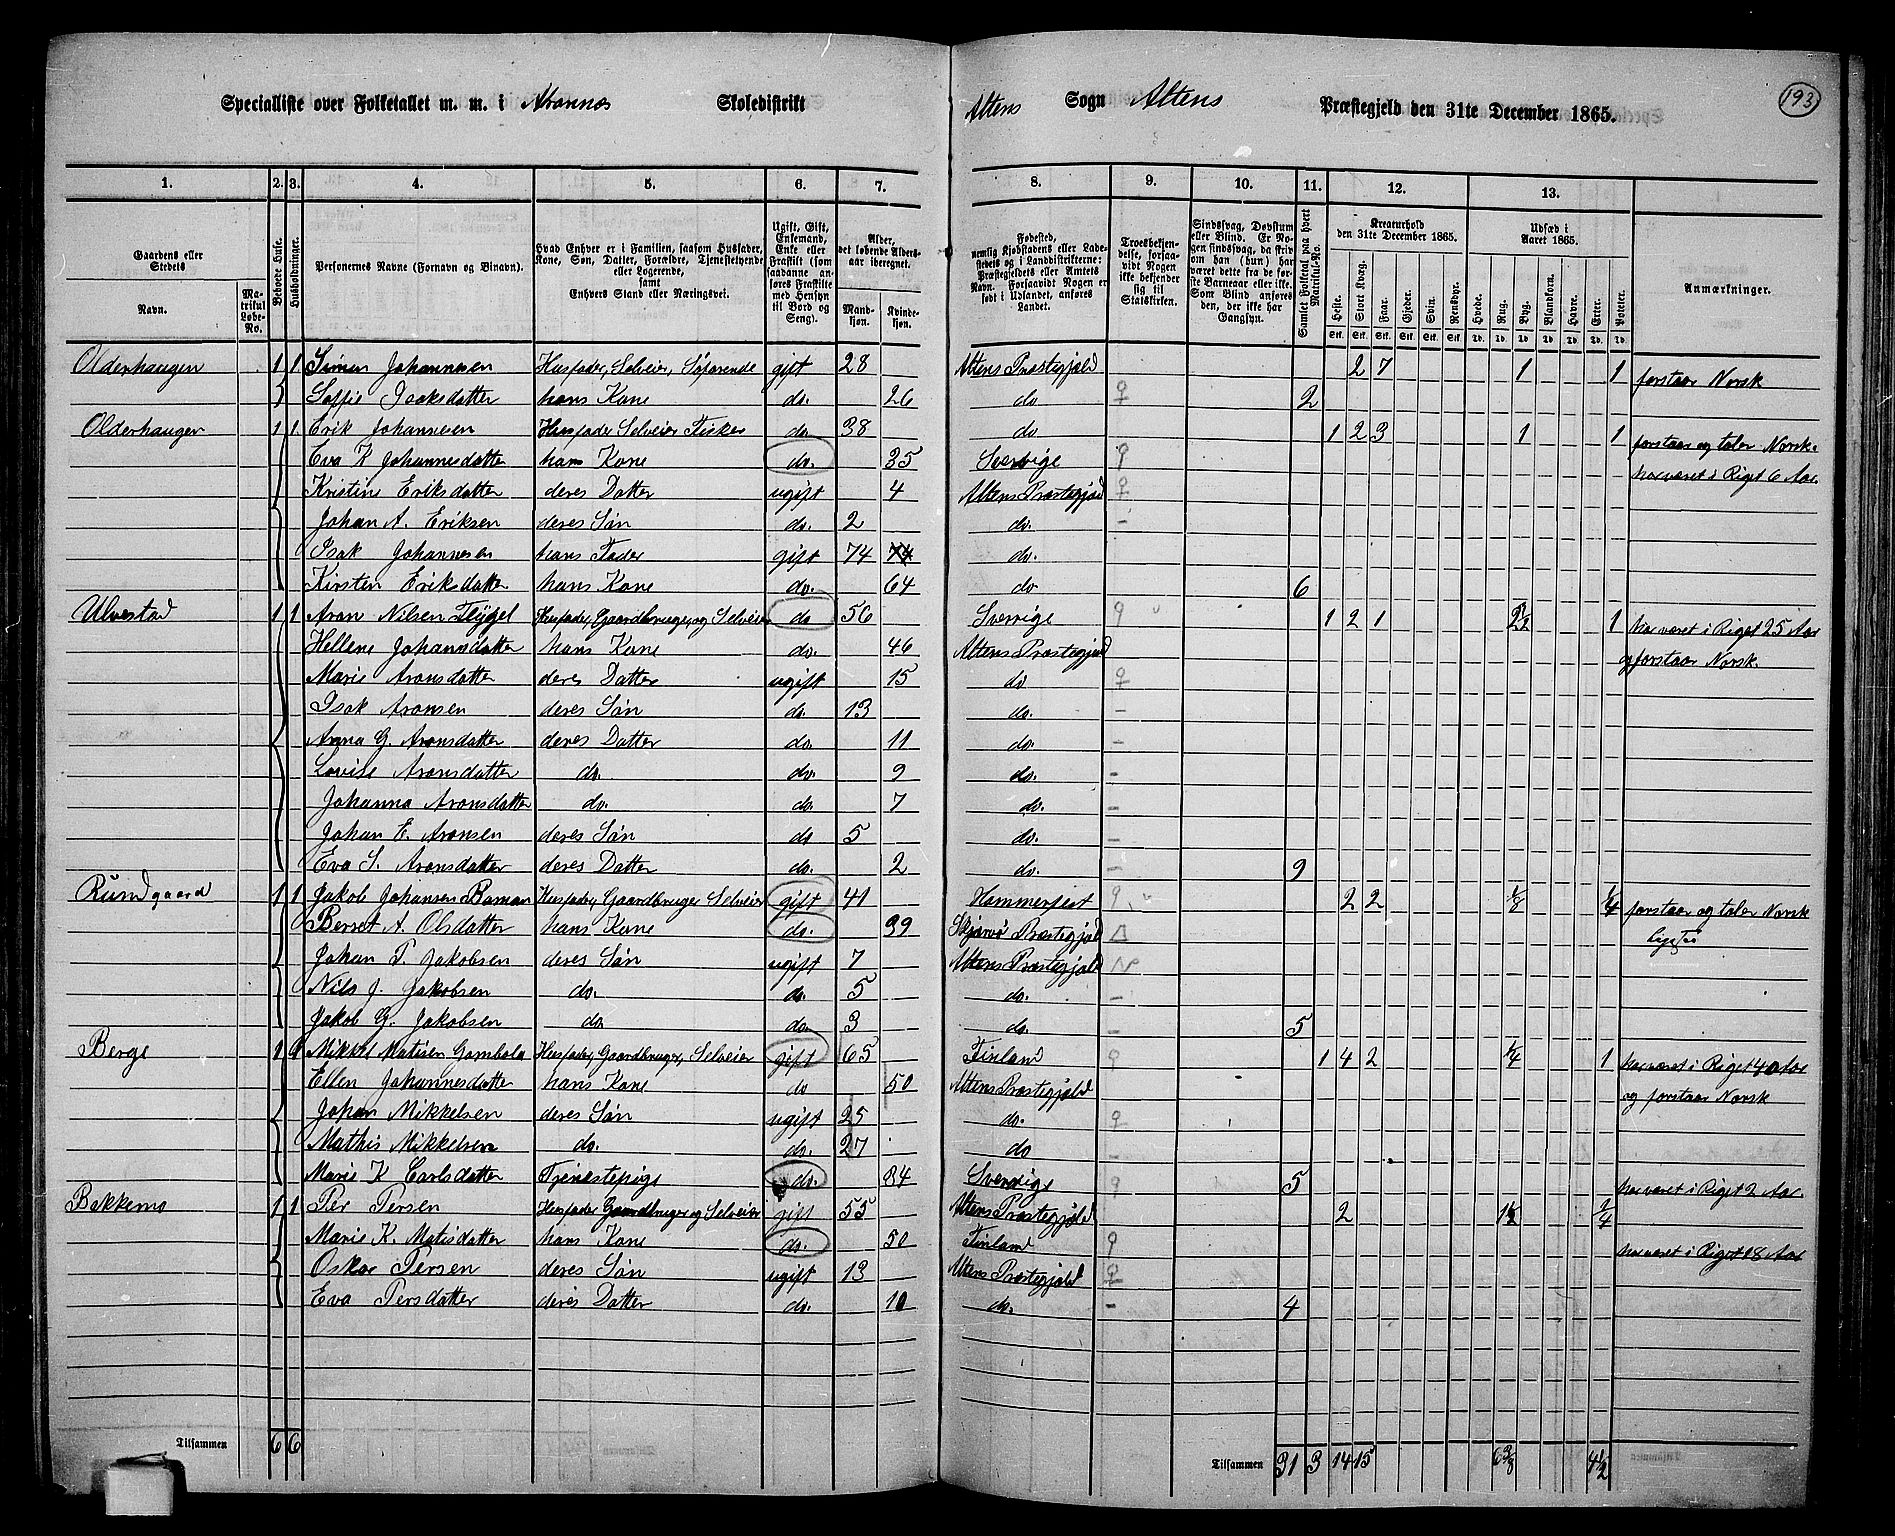 193
Specialliste over Folketallet m. m. i Skoledistrikt Altens Sogn Altens Præstegjeld den 31te December 1865.
1. 2. 3. 4. 5. 6. 7. 8. 9. 10. 11. 12. 13.
Gaardens eller Stedets Navn. Matrikul Løbe-No. Beboede Huse. Husholdninger. Personernes Navne (Fornavn og Binavn). Hvad Enhver er i Familien, saasom Husfader, Kone, Søn, Datter, Forældre, Tjenestetyende eller Logerende, samt Enhvers Stand eller Næringsvei. Ugift, Gift, Enkemand, Enke eller Fraskilt (som saadanne anføres Fraskilte med Hensyn til Bord og Seng). Alder, det løbende Alders-aar iberegnet. Mandkjøn. Kvindekjøn.
Fødested, nemlig Kjøbstadens eller Ladestedets og i Landdistrikterne: Præstegjeldets eller Amtets Navn. Forsaavidt Nogen er født i Udlandet, anføres Landet. Troesbekjendelse, forsaavidt Nogen ikke bekjender sig til Statskirken. Sindssvag, Døvstum eller Blind. Er Nogen sindssvag, da skrives om han (hun) har været dette fra de første Barneaar eller ikke. Som Blind anføres den, der ikke har Gangsyn. Samlet Folketal paa hvert Matrikul-No. Kreaturhold den 31te December 1865. Heste. Stort Kvæg. Faar. Gjeder. Svin. Rensdyr. Udsæd i Aaret 1865. Hvede. Rug. Byg. Blandkorn. Havre. Erter. Poteter. Anmærkninger.
Olderhaugen 1 1 Simon Johannesen Husfader, Selveier, Søfarende gift 28 Altens Præstegjeld 2 7 1 1 forstaar Norsk
Soffie Isaksdatter hans Kone do. 26 do 2
Olderhaugen 1 1 Erik Johannesen Husfader Selveier Fisker do. 38 do 1 2 3 1 1 forstaar og taler Norsk.
Eva K Johannesdatter hans Kone do. 35 Sverrige har været i Riget 6 Aar.
Kristine Eriksdatter deres Datter ugift 4 Altens Præstegjeld
Johan A. Eriksen deres Søn do. 2 do.
Isak Johannesen hans Fader gift 74 74 do.
Kirsten Eriksdatter hans Kone do. 64 do 6
Ulvestad 1 1 Aron Nilsen Flygel Husfader, Gaardbruger og Selveier do 56 Sverrige 1 2 1 2½ 1 har været i Riget 25 Aar
Hellene Johansdatter hans Kone do. 46 Altens Præstegjeld og forstaar Norsk.
Marie Aronsdatter deres Datter ugift 15 do
Isak Aronsen deres Søn do. 13 do.
Anna G. Aronsdatter deres Datter do. 11 do.
Lovise Aronsdatter do. do. 9 do.
Johanna Aronsdatter do. do. 7 do.
Johan E. Aronsen deres Søn do 5 do.
Eva S. Aronsdatter deres Datter do. 2 do. 9
Rundgaard 1 1 Jakob Johansen Baman Husfader, Gaardbruger Selveier gift 41 Hammerfest 2 2 ⅛ ¼ forstaar og taler Norsk
Berset A. Olsdatter hans Kone do. 39 Skjærvø Præstegjeld
Johan P. Jakobsen deres Søn ugift 7 Altens Præstegjeld
Nils J. Jakobsen do. do. 5 do.
Jakob G. Jakobsen do. do. 3 do. 5
Berge 1 1 Mikkel Matisen Gambola Husfader, Gaardbruger, Selveier gift 65 Finland 1 4 2 ¼ 1 har været i Riget 40 Aar
Ellen Johannesdatter hans Kone do 50 Altens Præstegjeld og forstaar Norsk
Johan Mikkelsen deres Søn ugift 25 do.
Mathis Mikkelsen do. do. 27 do
Marie K Carlsdatter Tjenestepige do. 34 Sverrige 5 har været i Riget 2 Aar.
Bakkemo 1 1 Per Persen Husfader Gaardbruger og Selveier gift 55 Altens Præstegjeld 2 1½ ¼
Marie K. Matisdatter hans Kone do. 50 Finland har været i Riget 18 Aar
Oskar Persen deres Søn ugift 13 Altens Præstegjeld
Eva Persdatter deres Datter do. 10 do. 4
Tilsammen 6 6 Tilsammen 31 3 14 15 6⅜ 4½